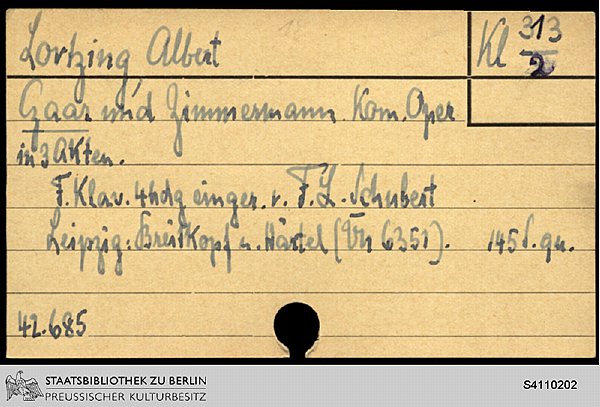 Lortzing, Albert
Kl 313/2
Czaar und Zimmermann. Kom. Oper
in 3 Akten.
F. Klav. 4hdg einger. v. F. L. Schubert
Leipzig: Breitkopf u. Härtel (Vn 6351). 145 S. qu.
42.685
STAATSBIBLIOTHEK ZU BERLIN
PREUSSISCHER KULTURBESITZ
S4110202